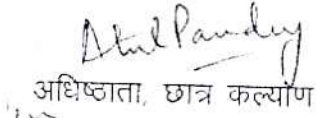 Atul Pandey
अधिष्ठाता, छात्र कल्याण